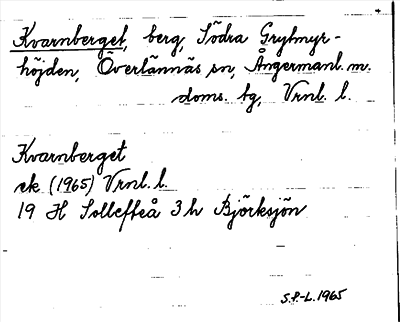 Kvarnberget, berg, Södra Grytmyr-
höjden, Överlännäs sn, Ångermanl. m.
doms. tg, Vrnl. l.
Kvarnberget
ek (1965) Vrnl. l.
19 H Sollefteå 3 h Björksjön
S.P.-L. 1965